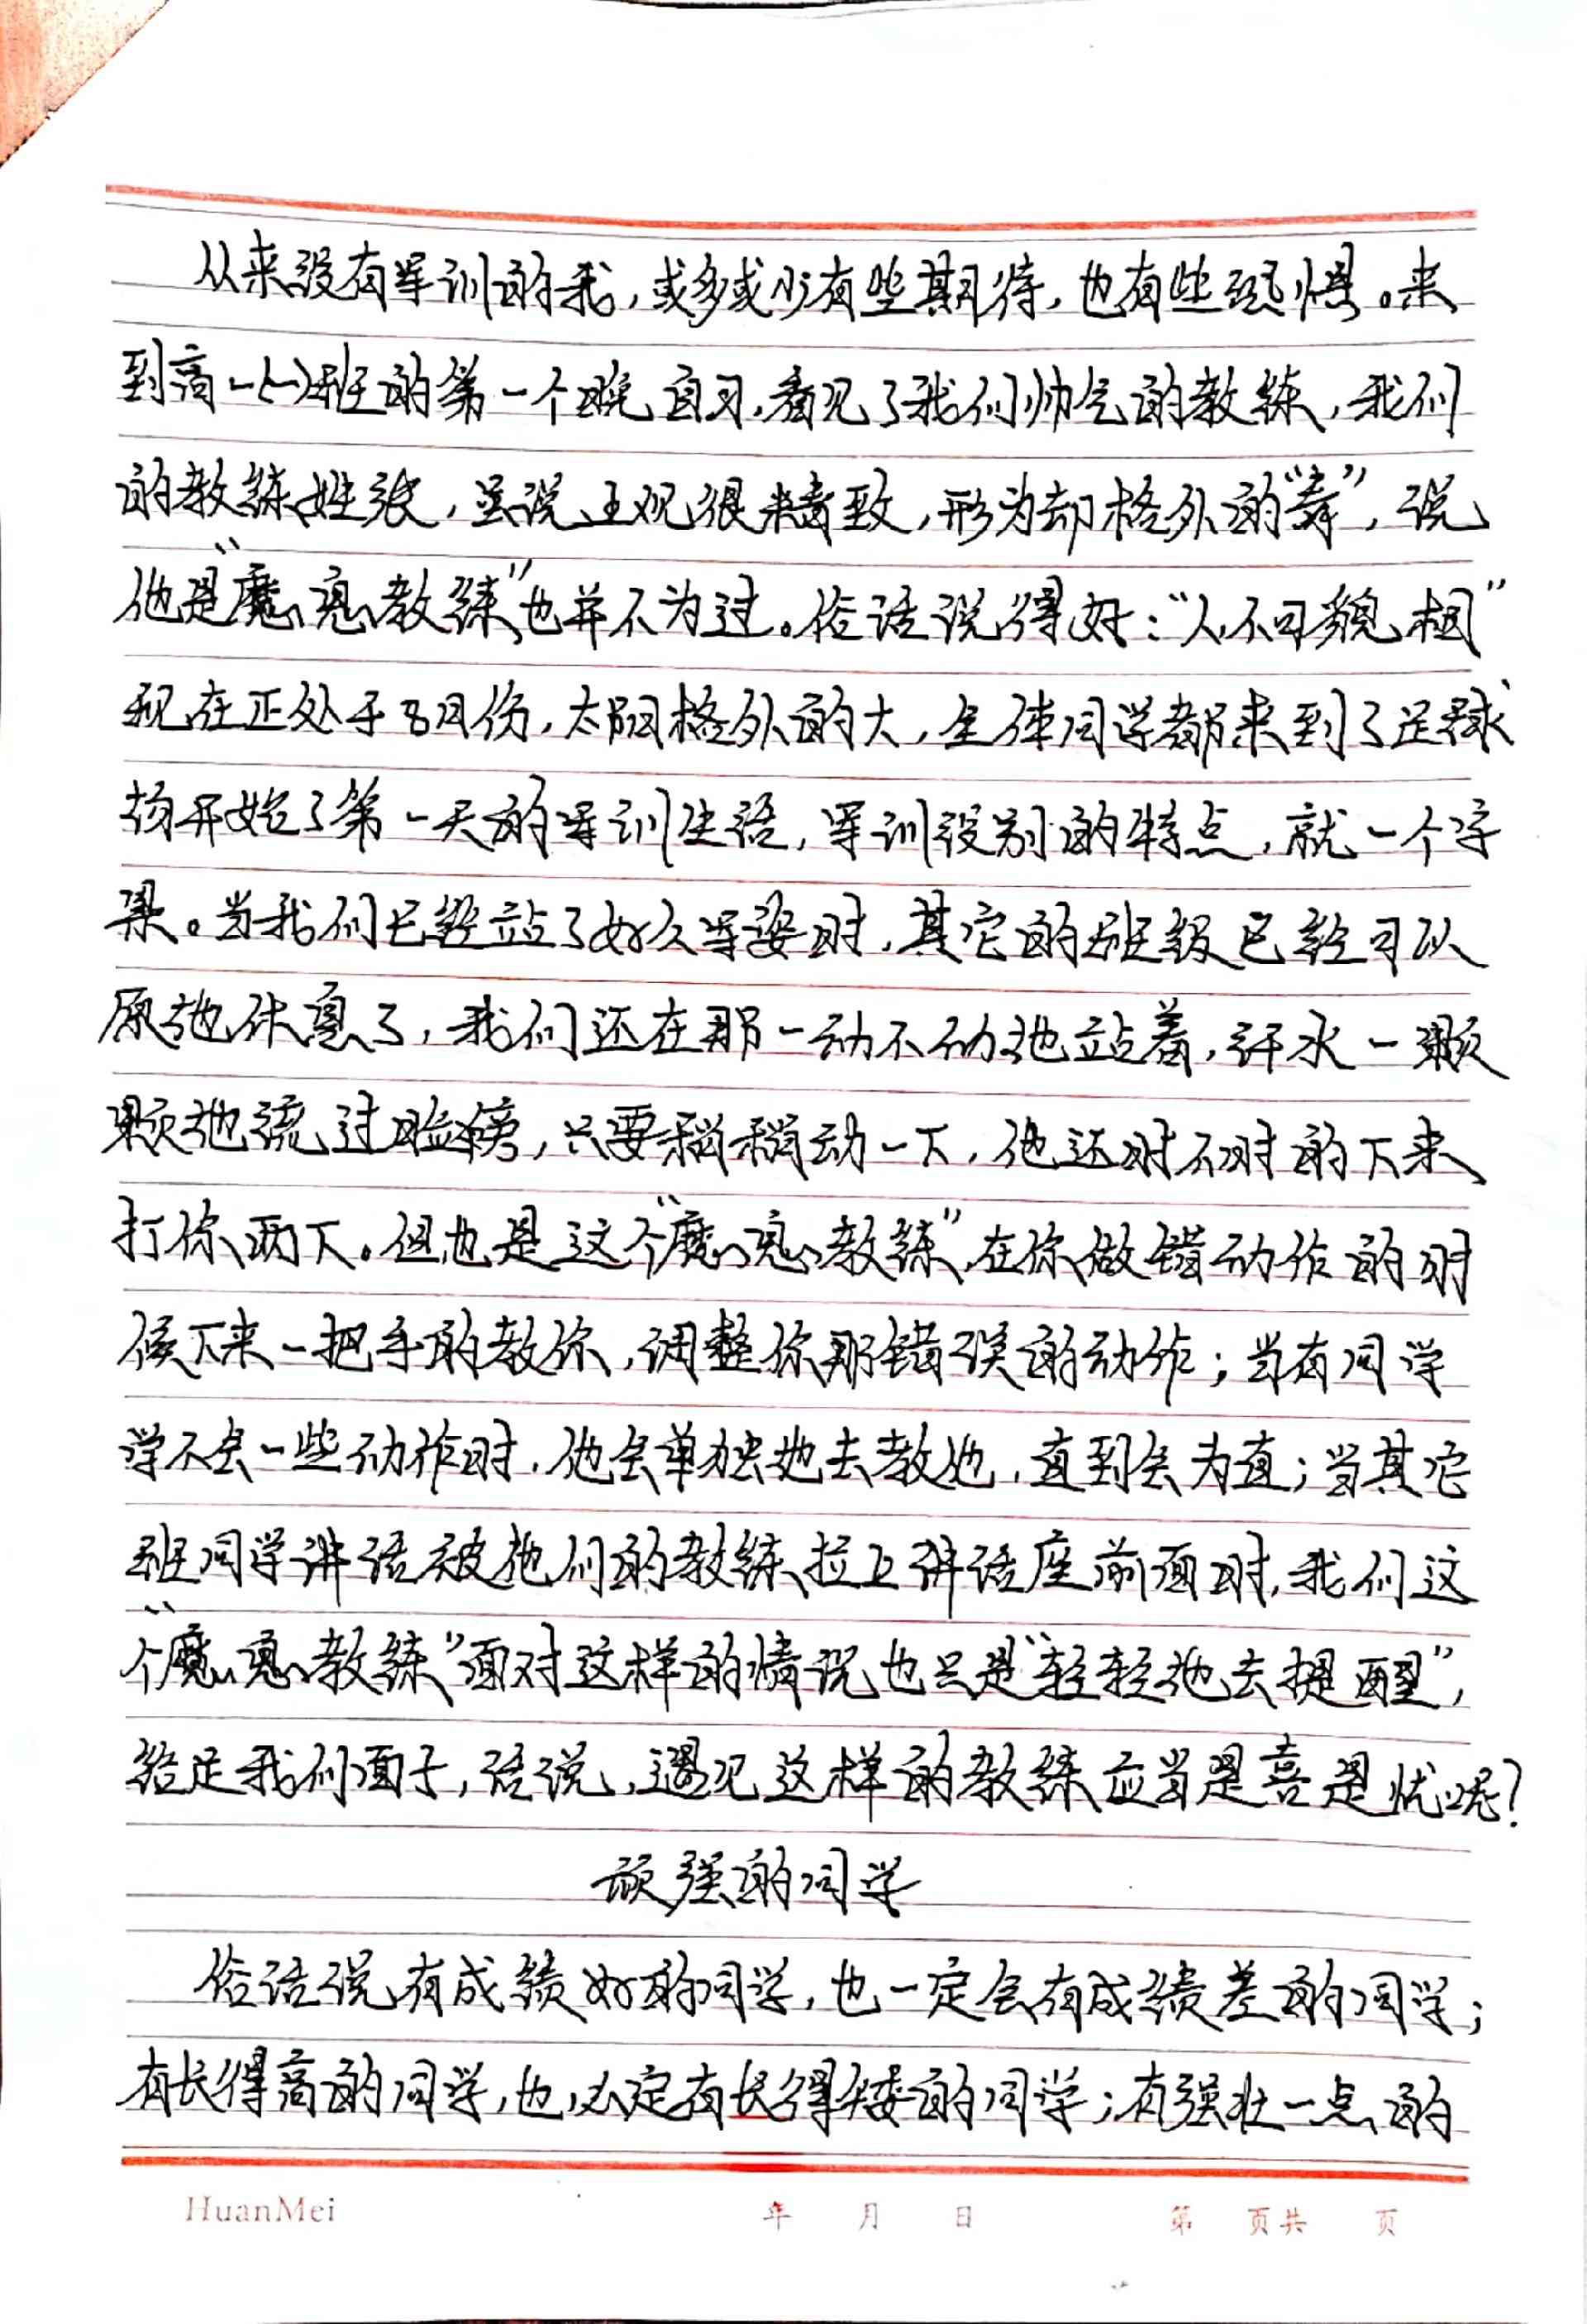 从来没有军训的我，或多或少有些期待，也有些恐惧。来
到高一(一)班的第一个晚自习，看见了我们帅气的教练，我们
的教练姓张，虽说主观很精致，形为却格外的“毒”，说
他是“魔鬼教练”也并不为过。俗话说得好：“人不可貌相”
现在正处于8月份，太阳格外的大，全体同学都来到了足球
场开始了第一天的军训生活，军训没别的特点，就一个字
累。当我们已经站了好久军姿时，其它的班级已经可以
原地休息了，我们还在那一动不动地站着，汗水一颗
颗地流过脸旁，只要稍稍动一下，他还时不时的下来
打你两下。但也是这个“魔鬼教练”，在你做错动作的时
候下来一把手的教你，调整你那错误的动作；当有同学
学不会一些动作时，他会单独地去教他，直到会为直；当其它
班同学讲话被他们的教练拉上讲话座前面时，我们这
个“魔鬼教练”面对这样的情况也只是“轻轻地去提醒”，
给足我们面子，话说，遇见这样的教练应当是喜是忧呢？
顽强的同学
俗话说有成绩好的同学，也一定会有成绩差的同学；
有长得高的同学，也必定有长得矮的同学；有强壮一点的
HuanMei 年 月 日 第 页共 页